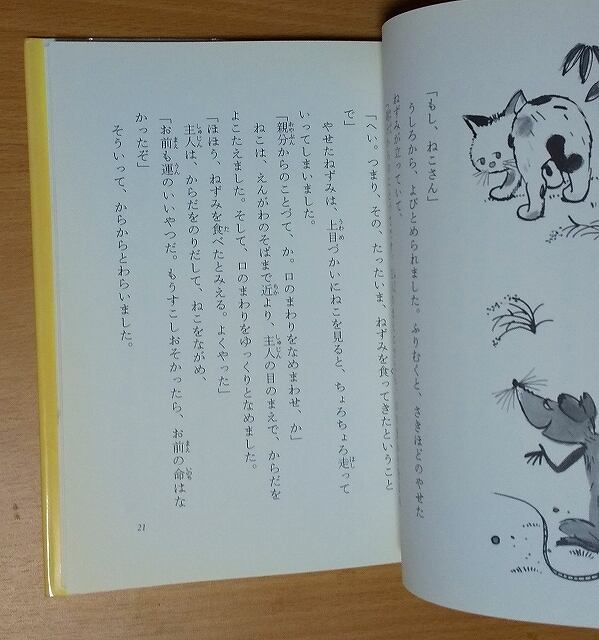 「もし、ねこさん」
うしろから、よびとめられました。ふりむくと、さきほどのやせた
ねずみが立っていて、
「へい。つまり、その、たったいま、ねずみを食ってきたということ
で」
やせたねずみは、上目づかいにねこを見ると、ちょろちょろ走って
いってしまいました。
「親分からのことづて、か。口のまわりをなめまわせ、か」
ねこは、えんがわのそばまで近より、主人の目のまえで、からだを
よこたえました。そして、口のまわりをゆっくりとなめました。
「ほほう、ねずみを食べたとみえる。よくやった」
主人は、からだをのりだして、ねこをながめ、
「お前も運のいいやつだ。もうすこしおそかったら、お前の命はな
かったぞ」
そういって、からからとわらいました。
21